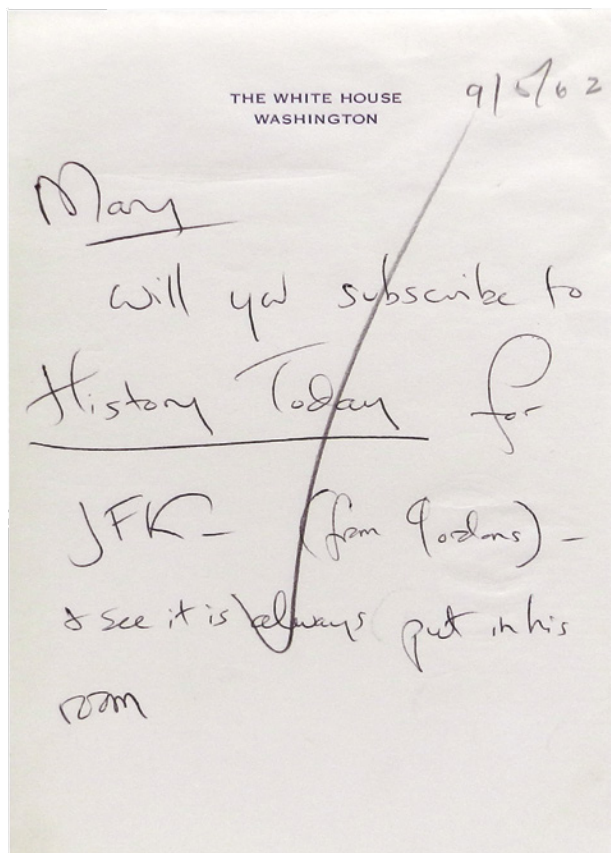 THE WHITE HOUSE
WASHINGTON
9/5/62
Mary
will you subscribe to
History Today for
JFK – (from Jordans) –
& see it is always put in his
room